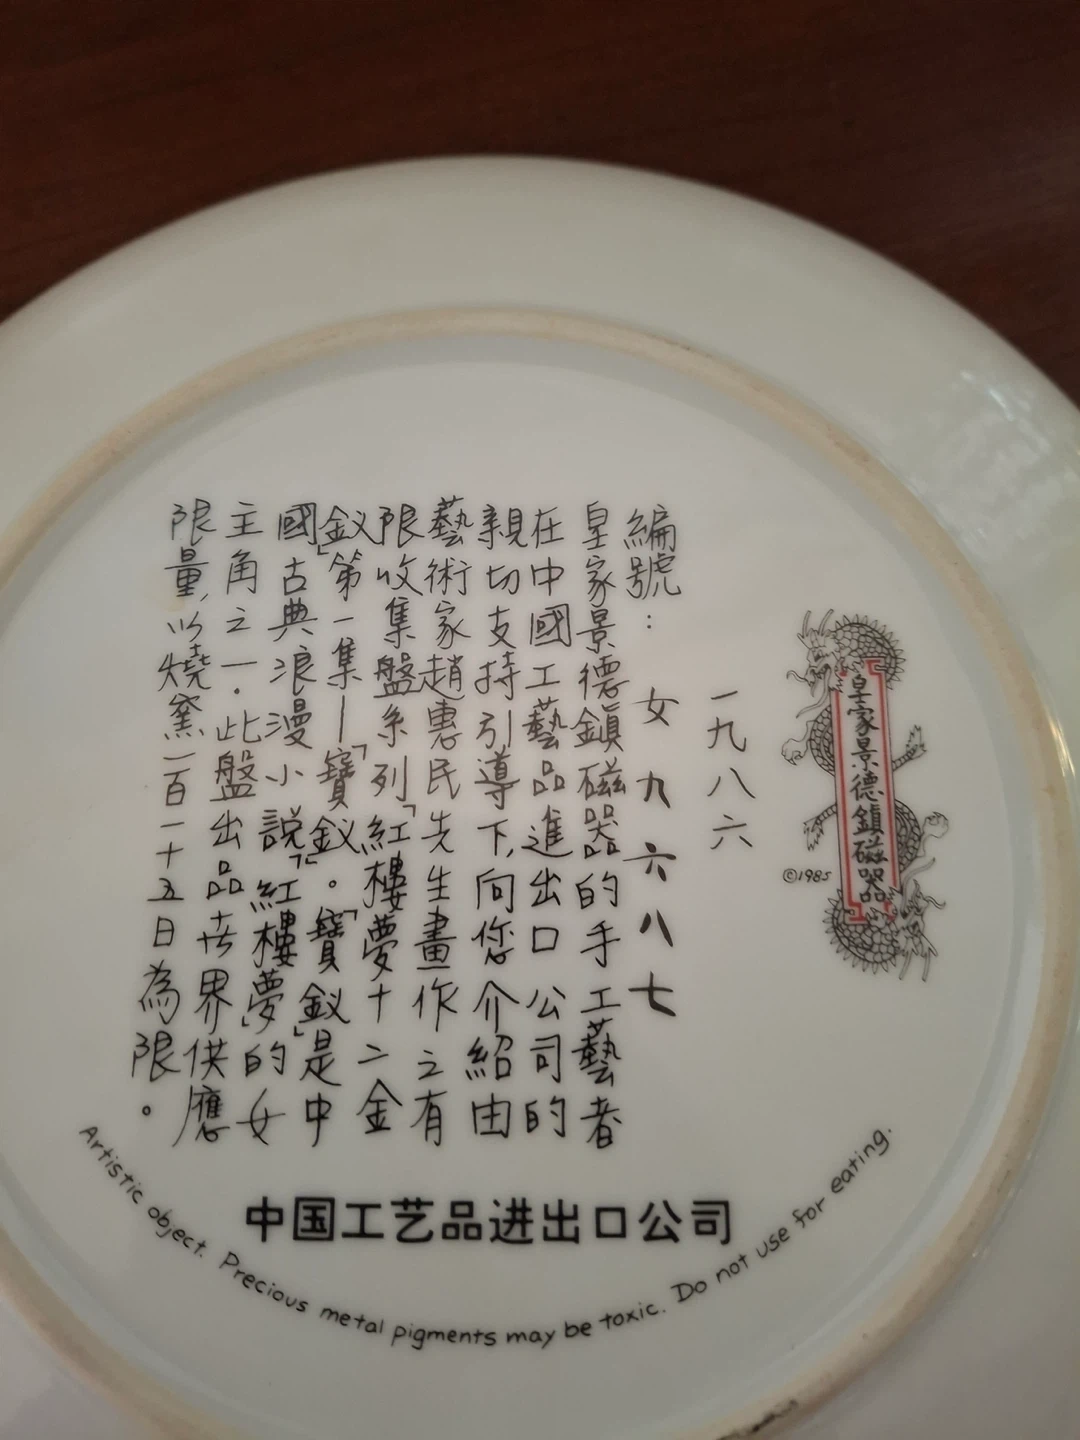 皇家景德鎮磁器
©1985
一九八六
編號：女九六八七
皇家景德鎮磁器的手工藝者
在中國工藝品進出口公司的
親切支持引導下,向您介紹由
藝術家趙惠民先生畫作之有
限收集盤系列「紅樓夢十二金
釵」第一集—「寶釵」。「寶釵」是中
國古典浪漫小說「紅樓夢」的女
主角之一.此盤出品世界供應
限量,以燒窯一百一十五日為限。
中国工艺品进出口公司
Artistic object. Precious metal pigments may be toxic. Do not use for eating.